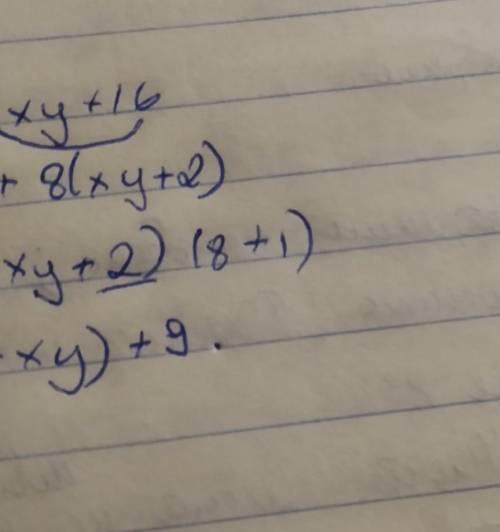 xy+16
+ 8(xy+2)
xy+2) (8+1)
xy)+9.